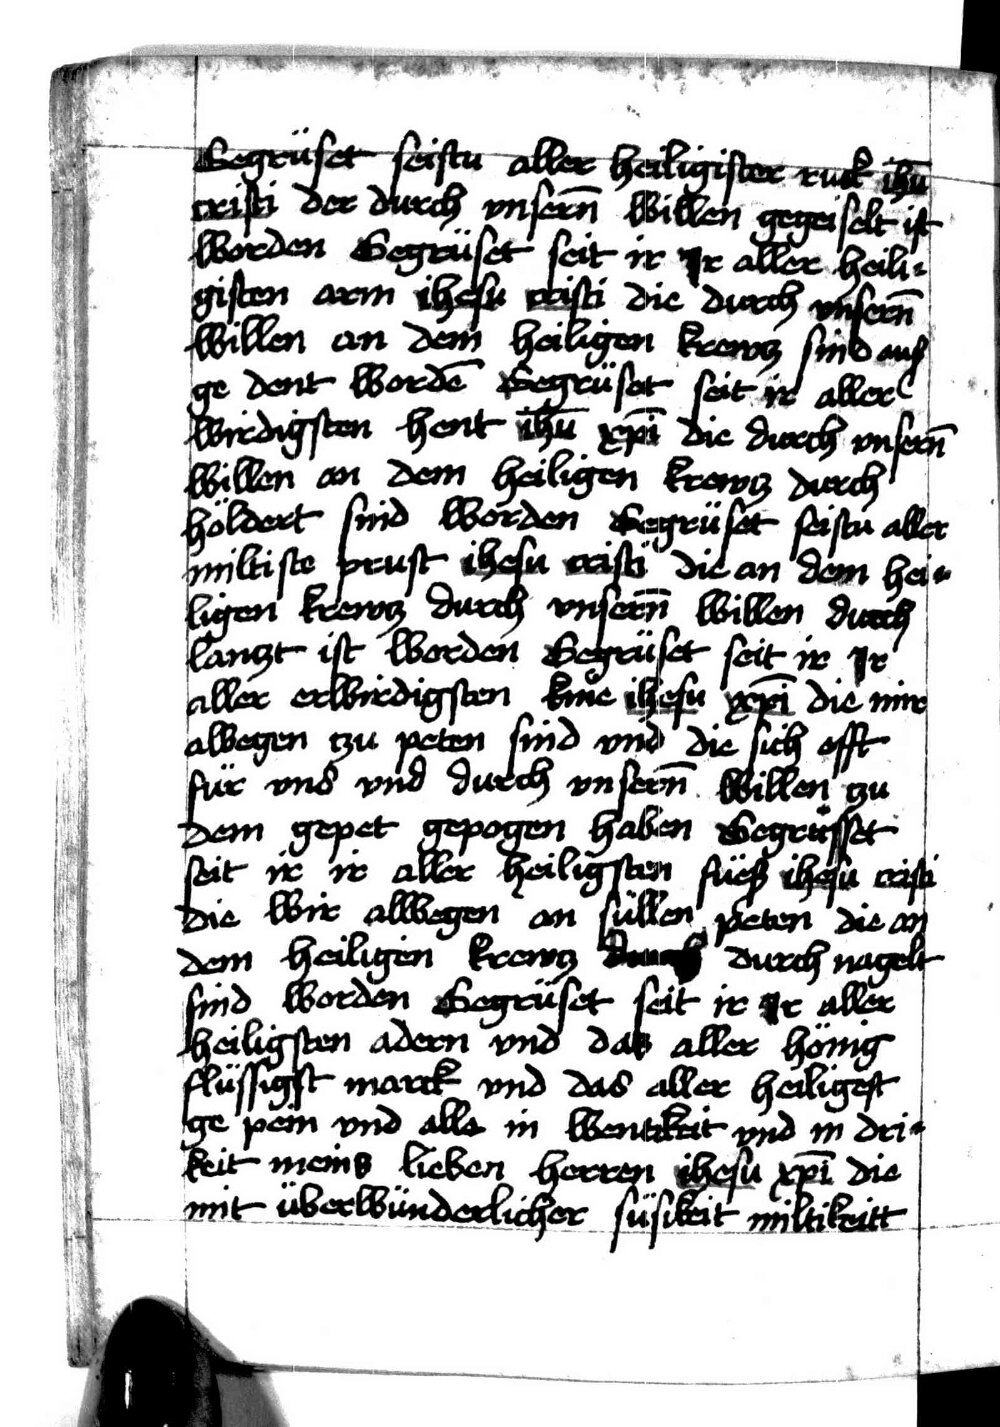 Gegrüset seistu aller heiligister ruck ihū
cristi der durch vnsern̄ willen gegeiselt ist
worden Gegrüset seit ir Ir aller heili-
gisten arm ihesu cristi die durch vnsern̄
willen an dem heiligen krewtz sind auf
ge dent wordē Gegrüset seit ir aller
wirdigsten hent ihū xp̄i die durch vnsern̄
willen an dem heiligen krewtz durch
höldert sind worden Gegrüset seistu aller
miltiste prust ihesu cristi die an dem hei-
ligen krewtz durch vnsern̄ willen durch
lantzt ist worden Gegrüset seit ir Ir
aller erwirdigsten knie ihesu xp̄i die mir
albegen tzu peten sind vnd die sich offt
für vns vnd durch vnsern̄ willen tzu
dem gepet gepogen haben Gegrüsset
seit ir ir aller heiligsten füeß ihesu cristi
die wir albegen an süllen peten die an
dem heiligen krewtz durch nagelt
sind worden Gegrüset seit ir Ir aller
heiligsten adern vnd das aller hönig
flüssigst marck vnd das aller heiligest
ge pein vnd alle in wentikeit vnd in dri-
keit meins lieben herren ihesu xp̄i die
mit überwünderlicher süsikeit miltikeitt